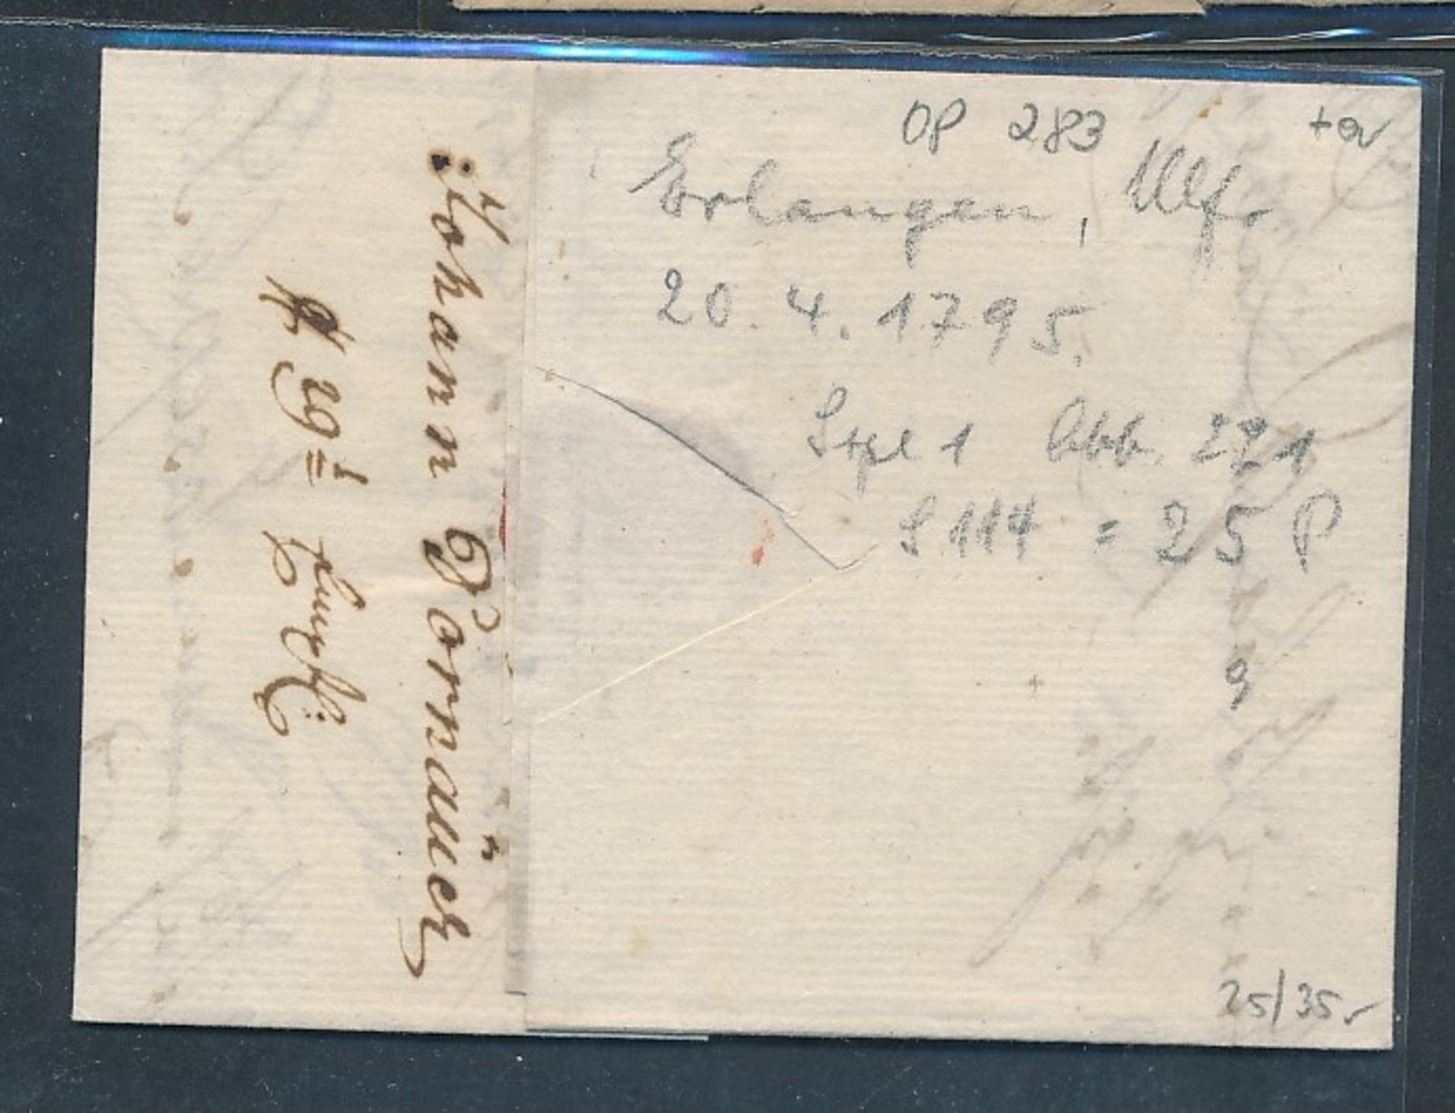 OP 283
Erlangen, Mfr.
20. 4. 1795.
Stpl 1 Abb. 221
S 114 = 25 P
9
25/35.-
Johann Dornauer
29